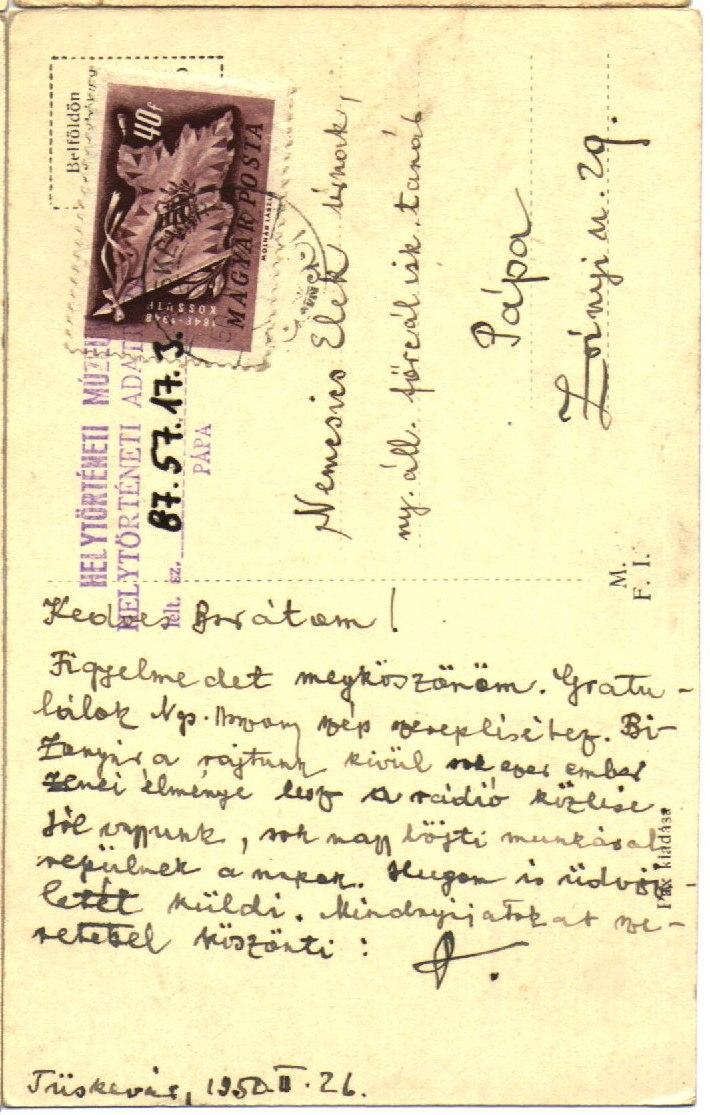 Belföldön
40f
MAGYAR POSTA
1848-1948
KOSSUTH
MOLNÁR LÁSZLÓ
HELYTÖRTÉNETI MÚZEU
HELYTÖRTÉNETI ADAT
lelt. sz. 87.57.17.3.
PÁPA
Nemcsics Elek úrnak,
ny. áll. főreálisk. tanár
Pápa
Zrínyi u. 29.
M.
F. I.
Kedves Barátom!
Figyelmedet megköszönöm. Gratu-
lálok Ngs. szép szerepléséhez. Bi-
zonyára rajtunk kívül sok ezer ember
zenei élménye lesz a rádió közlése
Jól vagyunk, sok napi böjti munkával
repülnek a napok. Hugom is üdvöz-
letét küldi. Mindnyájatokat sze-
retettel köszönti:
Tüskevár, 1950. II. 26.
kiadása